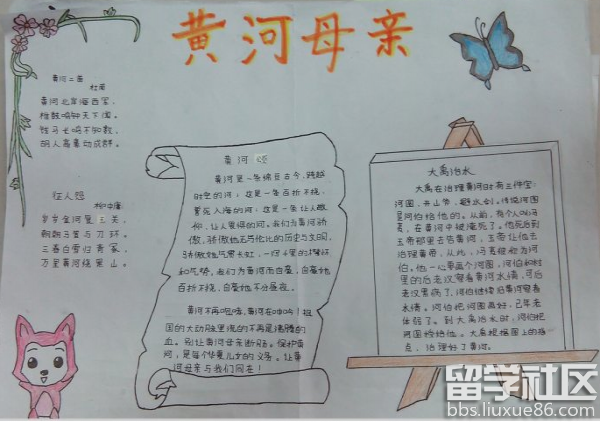 黄河母亲
黄河二首
杜甫
黄河北岸海西军,
椎鼓鸣钟天下闻。
铁马长鸣不知数,
胡人高鼻动成群。
征人怨
柳中庸
岁岁金河复玉关,
朝朝马策与刀环。
三春白雪归青冢,
万里黄河绕黑山。
黄河
黄河是一条绵亘古今,跨越
时空的河;这是一条百折不挠,
奔流入海的河;这是一条让人敬
仰,让人崇拜的河。我们为黄河骄
傲,骄傲他无与伦比的历史与文明,
和气势。我们为黄河而自豪,自豪他
百折不挠,自豪他不分昼夜。
黄河不再咆哮,黄河在呻吟!祖
国的大动脉里流的不再是沸腾的
血。别让黄河母亲断流。保护黄
河,是每个华夏儿女的义务。让黄
河母亲与我们同在!
大禹治水
大禹在治理黄河时有三件宝:
河图、开山斧、避水剑。传说河图
是河伯给他的。从前,有个人叫冯
夷,在黄河中被淹死了。他死后到
玉帝那里去告黄河,玉帝让他去
治理黄帝,从此,冯夷被称为河
伯。他一心要画个河图。河伯和村
里的后老汉察看黄河水情,可后
老汉累病了,河伯继续沿黄河察看
水情。河伯把河图画好,已年老
体弱了。到大禹治水时,河伯把
河图给给他。大禹根据图上的指
点,治理好了黄河。
留学社区
bbs.liuxue86.com